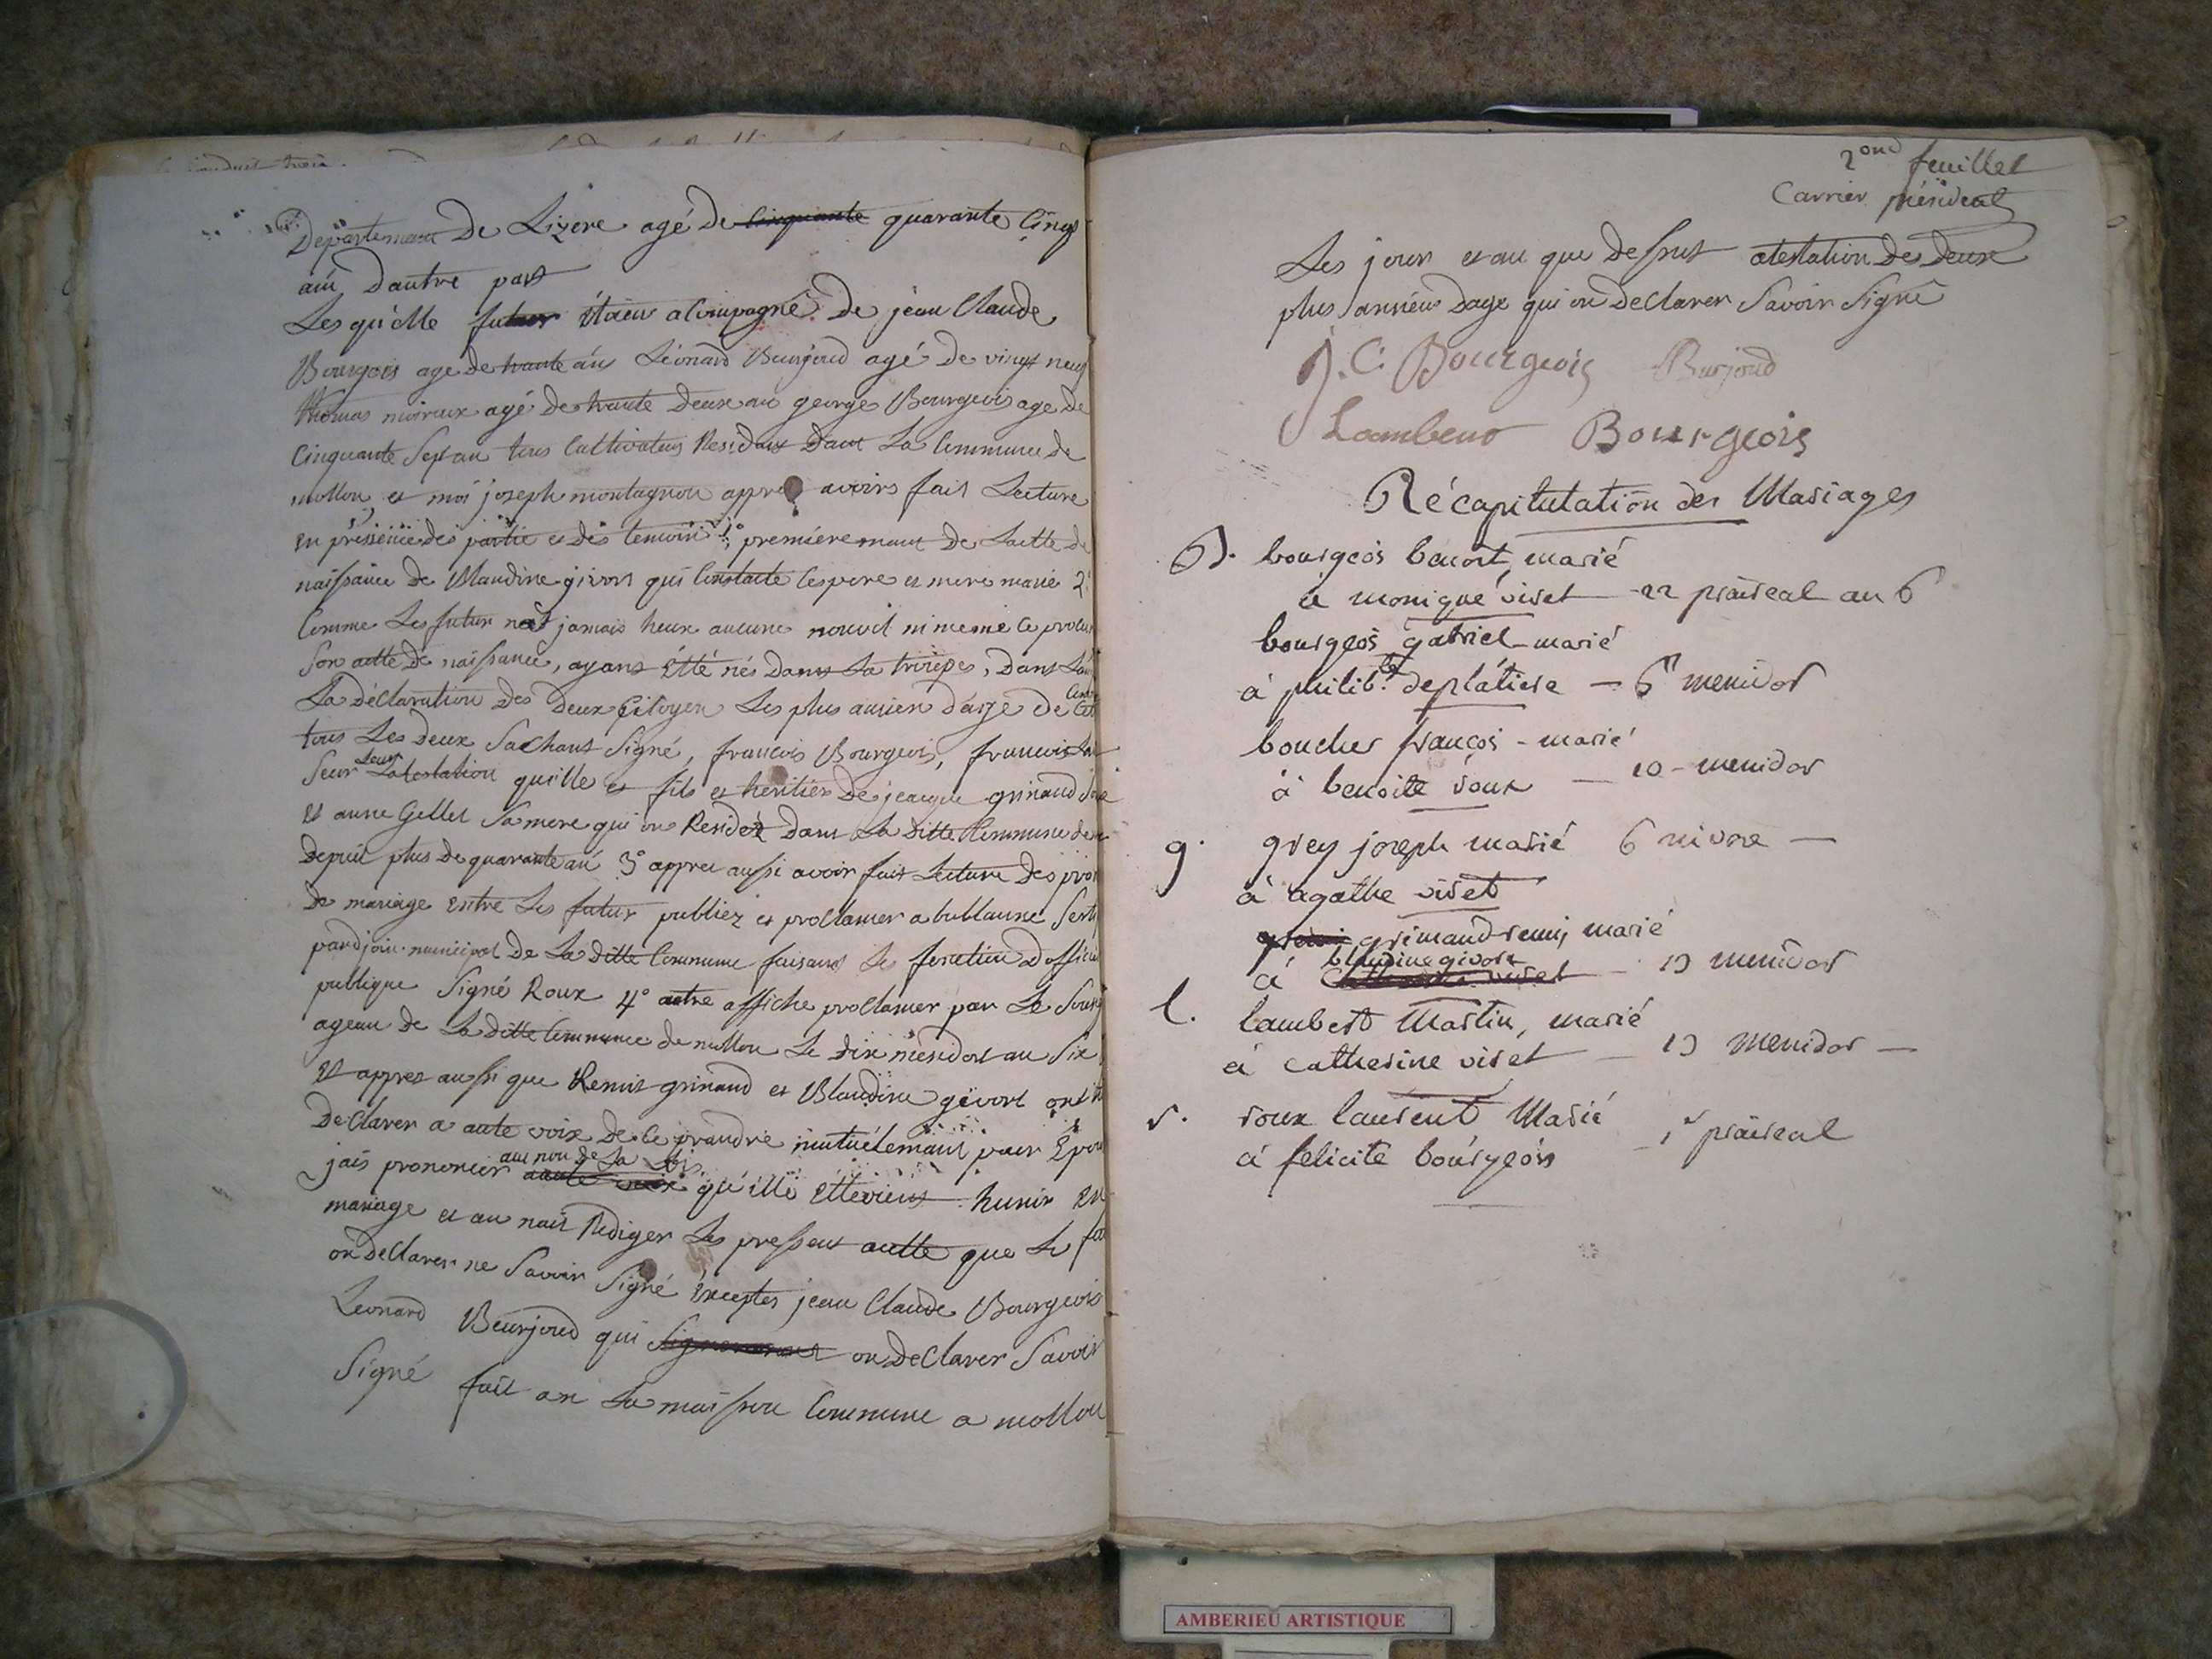 Departement De Lizere agé de cinquante quarante Cinq
an, Dautre part
Les quelle futur Étaien acompagné De jean Claude
Bourgois age de trante an Léonard Beurjoud agé De vingt neuf
Thomas moiroux agé De trante Deux an george Bourgeois age de
Cinquante Sept an tous Cultivateur Residant Dant La Commune de
mollon, et moi joseph montagnon appre avoirs fait Lecture
en présence des partie et des temoin, 1° premièremant De Lactte de
naissance de Blandine givors qui Constate Cespere et mere marié 2°
Comme Les futur nat jamais heux aucune nouvel ni meme Ce procur
Son actte De naissance, ayans étté nés Dans La troupes, Dans
La déclaration Des Deux Citoyen Les plus ancien d'age De
tous Les Deux Sachant Signé, francois Bourgeois, francois
Seur Leur atestation quille et fils et heritier De jeacque grimaud
et anne Gellet Sa mere qui on Residez Dans La ditte Commune de
Depuit plus De quarante an 3° appres aussi avoir fait Lecture Des
De mariage entre Les futur publiez et proclamer a bublanne
par djoin municipal De La ditte Commune faisant Les fonction D offici
publique Signé Roux 4° autre affiche proclamer par Le Sous
ageau de La ditte Commune de mollon Le Dix mesidor an Six
Et appres aussi que Remis grimaud et Blandine givort ont
DeClarer a aute voix De Ce prandre mutuélemant pour Epou
jais prononcer au non de La Loi qu'ille étteviens hunir En
mariage et au nait Rediger Les pressent actte que Le
on deClarer ne Savoir Signé éxcepter jean Claude Bourgeois
Leonard Beurjoud qui on DeClarer Savoir
Signé fait an La maison Commune a mollon
2ond feuillet
Carrier président
Les jour et an que Dessus atestation des deux
plus annien Dage qui on DeClarer Savoir Signé
J. C. Bourgeois Burjoud
Lambert Bourgeois
Récapitulation des Mariages
B. bourgeois benoit, marié
à monique viret 22 prairéal an 6
bourgeois gabriel marié
à philibte deplatiere — 6 messidor
boucher françois - marié
à benoite roux — 10 - messidor
g. grey joseph marié 6 nivose —
à agathe viret
grimaud remy marié
blandine givort
à — 13 messidor
l. lambert Martin, marié
à catherine viret — 13 messidor —
r. roux laurent Marié
à felicité bourgeois — 1er prairéal
AMBERIEU ARTISTIQUE